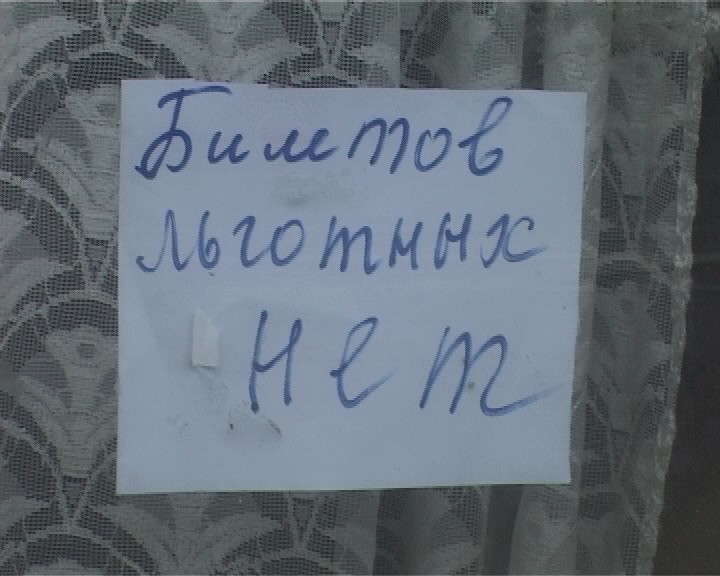 Билетов
льготных
нет